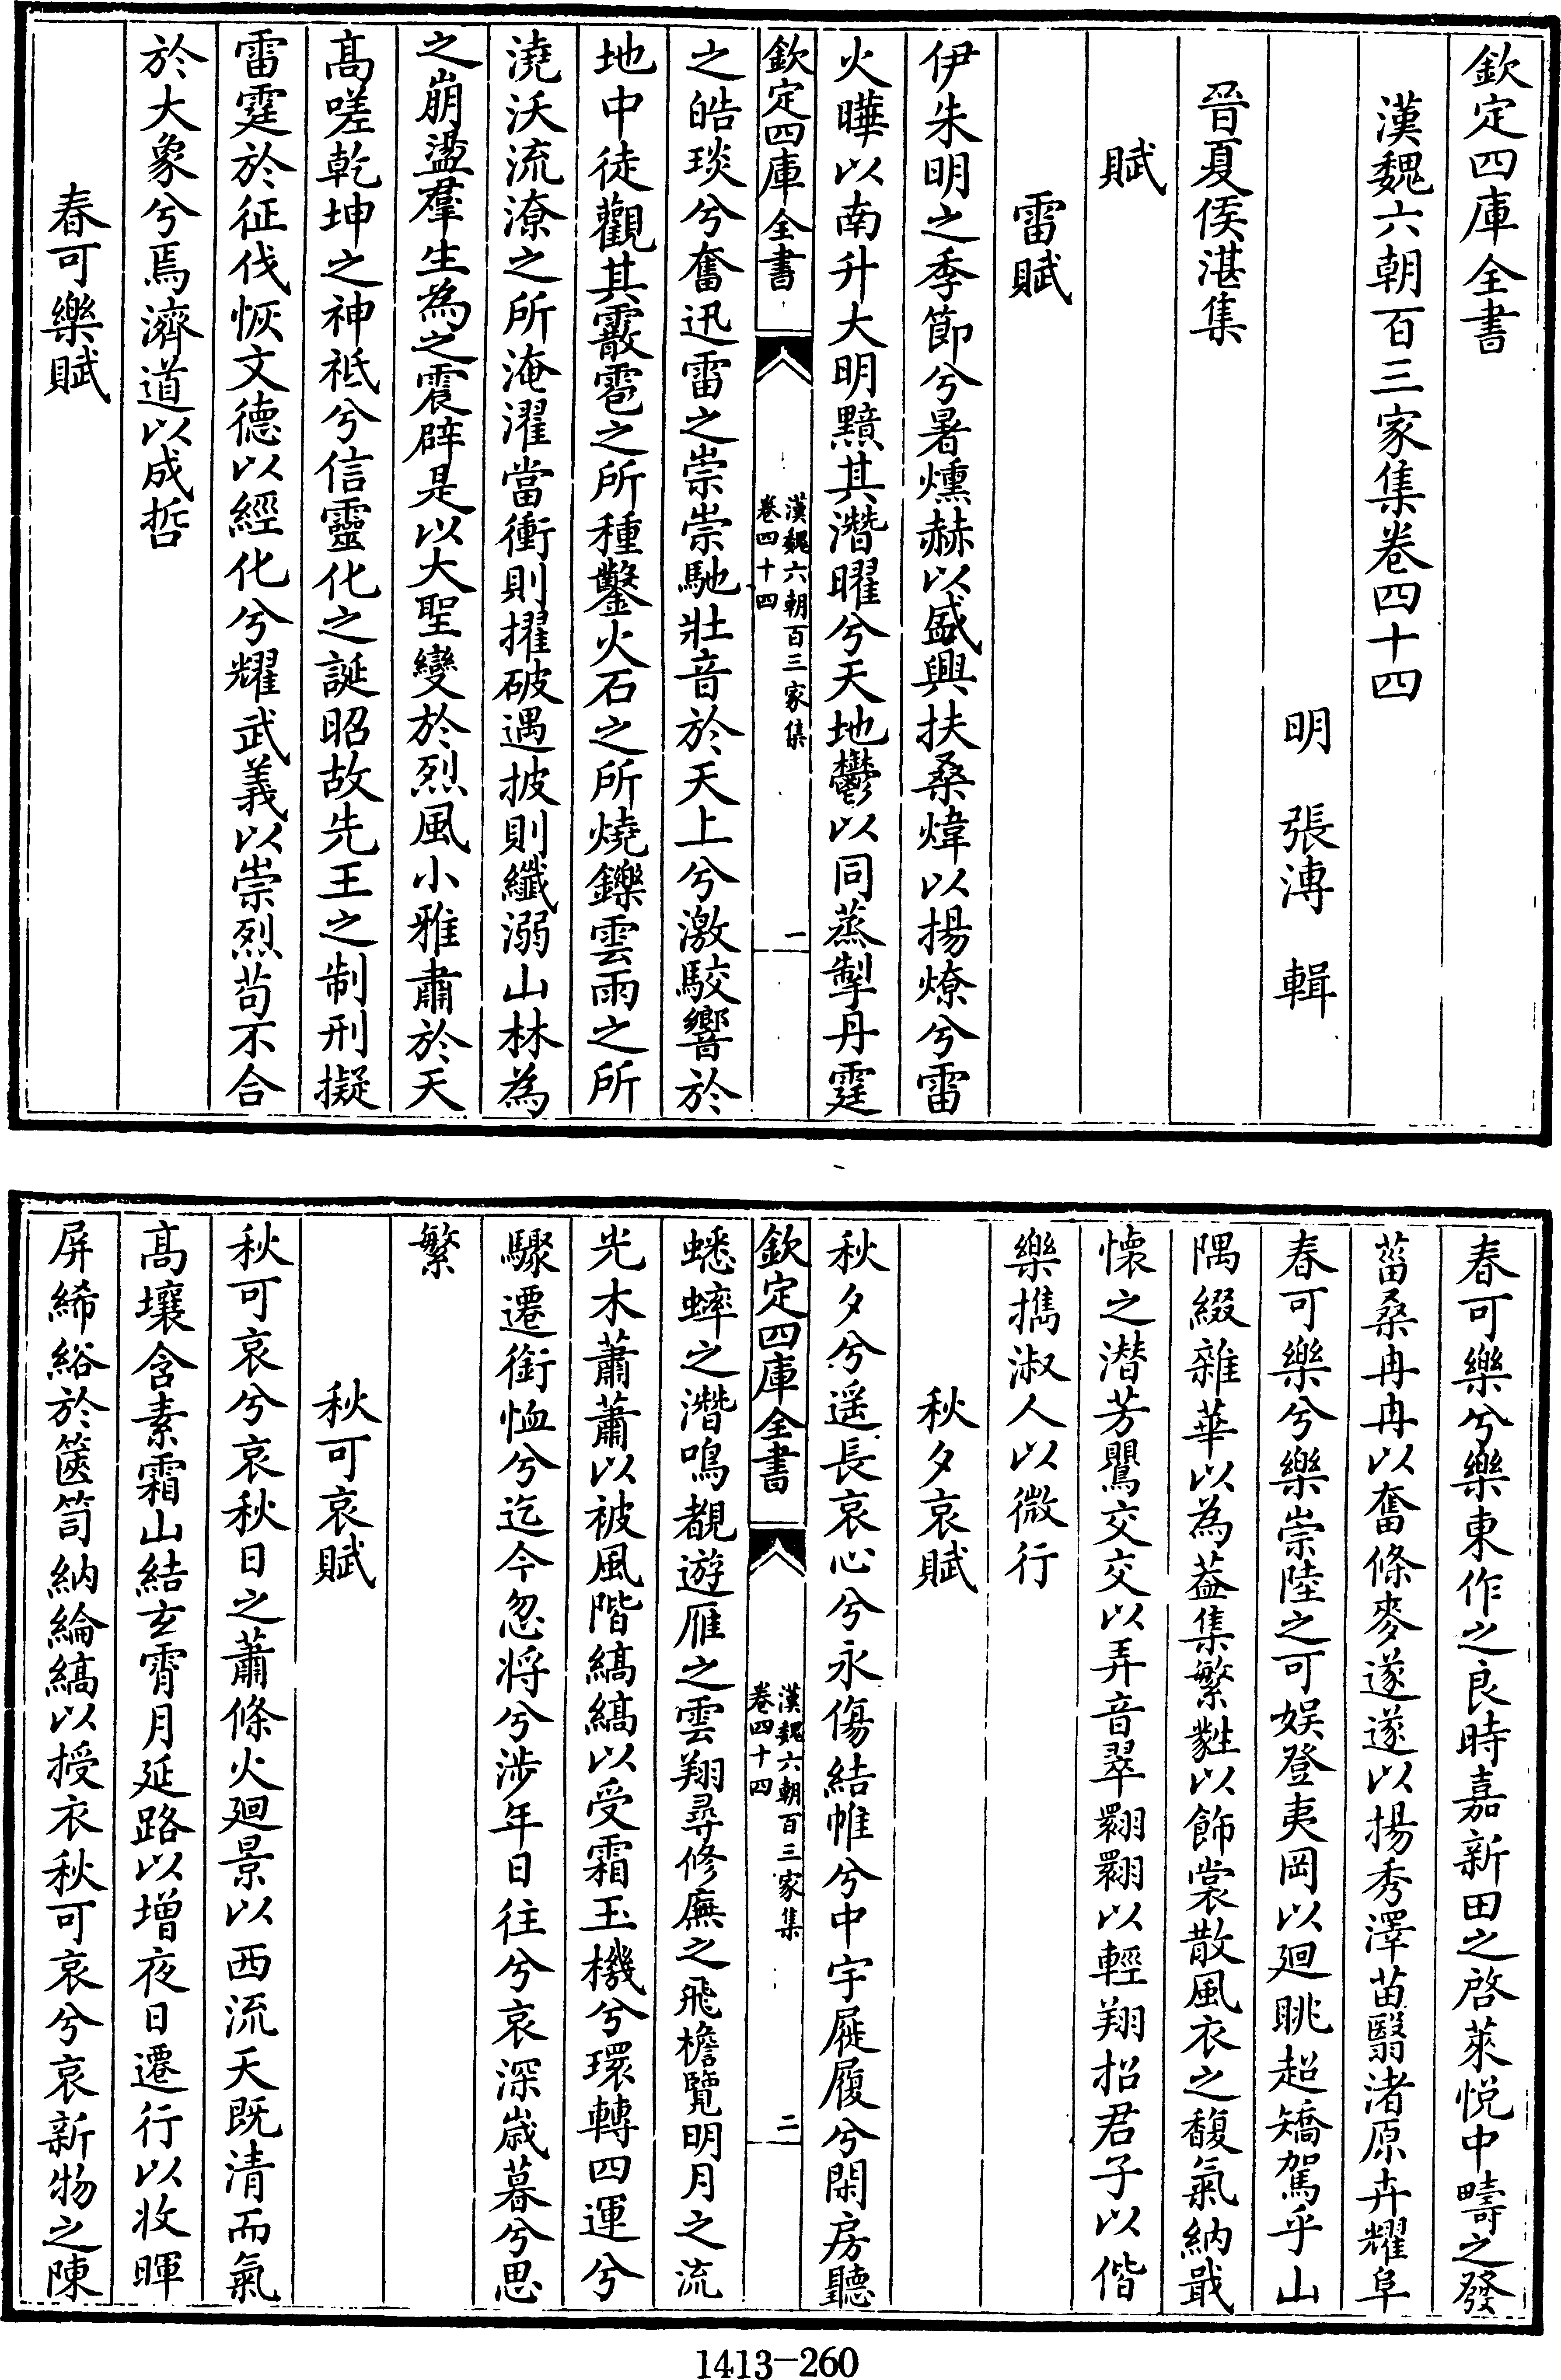 欽定四庫全書
漢魏六朝百三家集卷四十四
明　張溥　輯
晉夏侯湛集
賦
雷賦
伊朱明之季節兮暑燻赫以盛興扶桑煒以揚燎兮雷
火曄以南升大明黯其潛曜兮天地鬱以同蒸掣丹霆
欽定四庫全書
漢魏六朝百三家集
卷四十四
一
之皓琰兮奮迅雷之崇崇馳壯音於天上兮激駮響於
地中徒觀其霰雹之所種鑿火石之所燒鑠雲雨之所
澆沃流潦之所淹濯當衝則摧破遇披則纖溺山林為
之崩盪羣生為之震辟是以大聖變於烈風小雅肅於天
髙嗟乾坤之神祗兮信靈化之誕昭故先王之制刑擬
雷霆於征伐恢文德以經化兮耀武義以崇烈苟不合
於大象兮焉濟道以成哲
春可樂賦
春可樂兮樂東作之良時嘉新田之啓萊悅中疇之發
菑桑冉冉以奮條麥遂遂以揚秀澤苗翳渚原卉耀阜
春可樂兮樂崇陸之可娱登夷岡以廻眺超矯駕乎山
隅綴雜華以為葢集繁蕤以飾裳散風衣之馥氣納戢
懷之潛芳鸎交交以弄音翠翾翾以輕翔招君子以偕
樂擕淑人以微行
秋夕哀賦
秋夕兮遥長哀心兮永傷結帷兮中宇屣履兮閑房聽
欽定四庫全書
漢魏六朝百三家集
卷四十四
二
蟋蟀之潛鳴覩遊雁之雲翔尋修廡之飛檐覽明月之流
光木蕭蕭以被風階縞縞以受霜玉機兮環轉四運兮
驟遷銜恤兮迄今忽將兮涉年日往兮哀深嵗暮兮思
繁
秋可哀賦
秋可哀兮哀秋日之蕭條火廻景以西流天既清而氣
髙壤含素霜山結玄霄月延路以增夜日遷行以收暉
屏絺綌於篋笥納綸縞以授衣秋可哀兮哀新物之陳
1413-260